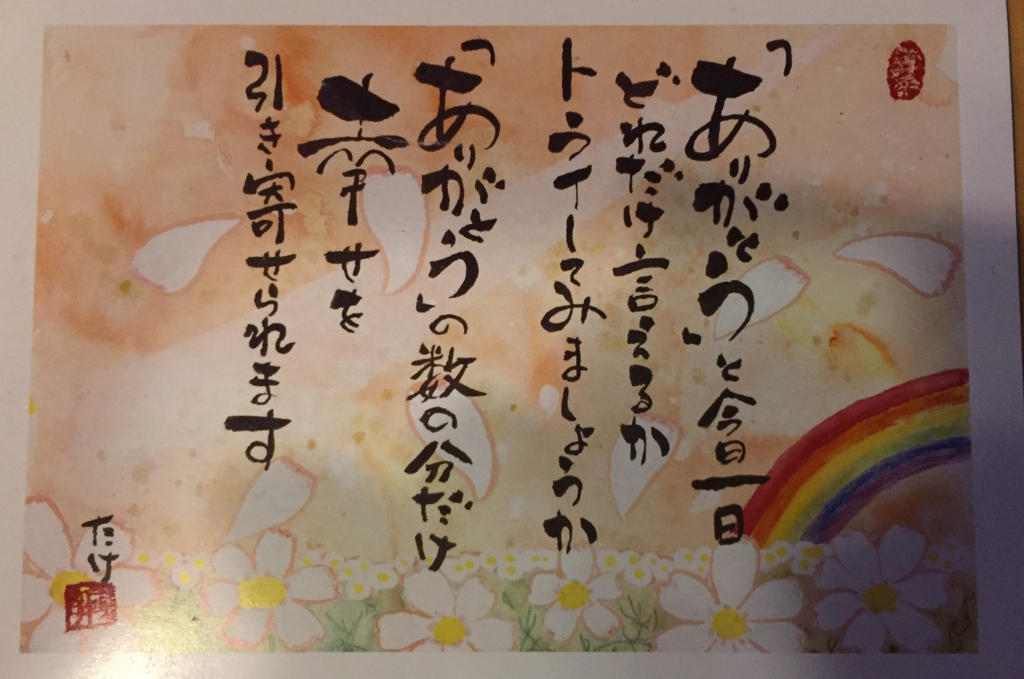 「ありがとう」と今日一日
どれだけ言えるか
トライしてみましょうか
「ありがとう」の数の分だけ
幸せを
引き寄せられます
たけ